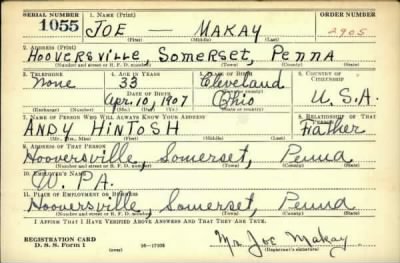 SERIAL NUMBER 1. NAME (Print) ORDER NUMBER
1055 JOE — MAKAY 2905
(First) (Middle) (Last)
2. ADDRESS (Print)
HOOVERSVILLE SOMERSET, PENNA
(Number and street or R. F. D. number) (Town) (County) (State)
3. TELEPHONE 4. AGE IN YEARS 5. PLACE OF BIRTH 6. COUNTRY OF CITIZENSHIP
None 33 Cleveland
DATE OF BIRTH (Town or county)
Apr. 10, 1907 Ohio U.S.A.
(Exchange) (Number) (Mo.) (Day) (Yr.) (State or country)
7. NAME OF PERSON WHO WILL ALWAYS KNOW YOUR ADDRESS 8. RELATIONSHIP OF THAT PERSON
ANDY HINTOSH Father
(Mr., Mrs., Miss) (First) (Middle) (Last)
9. ADDRESS OF THAT PERSON
Hooversville, Somerset, Penna
(Number and street or R. F. D. number) (Town) (County) (State)
10. EMPLOYER'S NAME
W. P.A.
11. PLACE OF EMPLOYMENT OR BUSINESS
Hooversville, Somerset, Penna
(Number and street or R. F. D. number) (Town) (County) (State)
I AFFIRM THAT I HAVE VERIFIED ABOVE ANSWERS AND THAT THEY ARE TRUE.
REGISTRATION CARD
D. S. S. Form 1 (over) 16—17105 Mr. Joe Makay
(Registrant's signature)